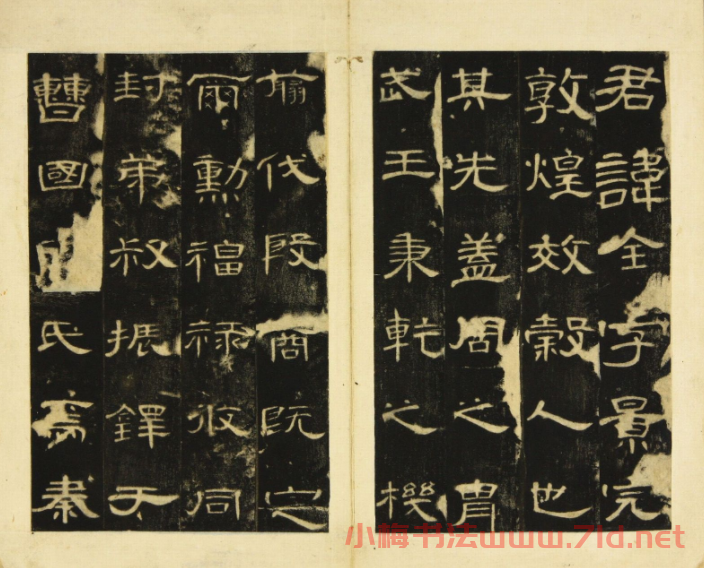 君諱全字景完
敦煌效穀人也
其先蓋周之胄
武王秉乾之機
翦伐殷商既定
爾勳福祿攸同
封弟叔振鐸于
曹國氏焉秦
小梅书法www.7ld.net